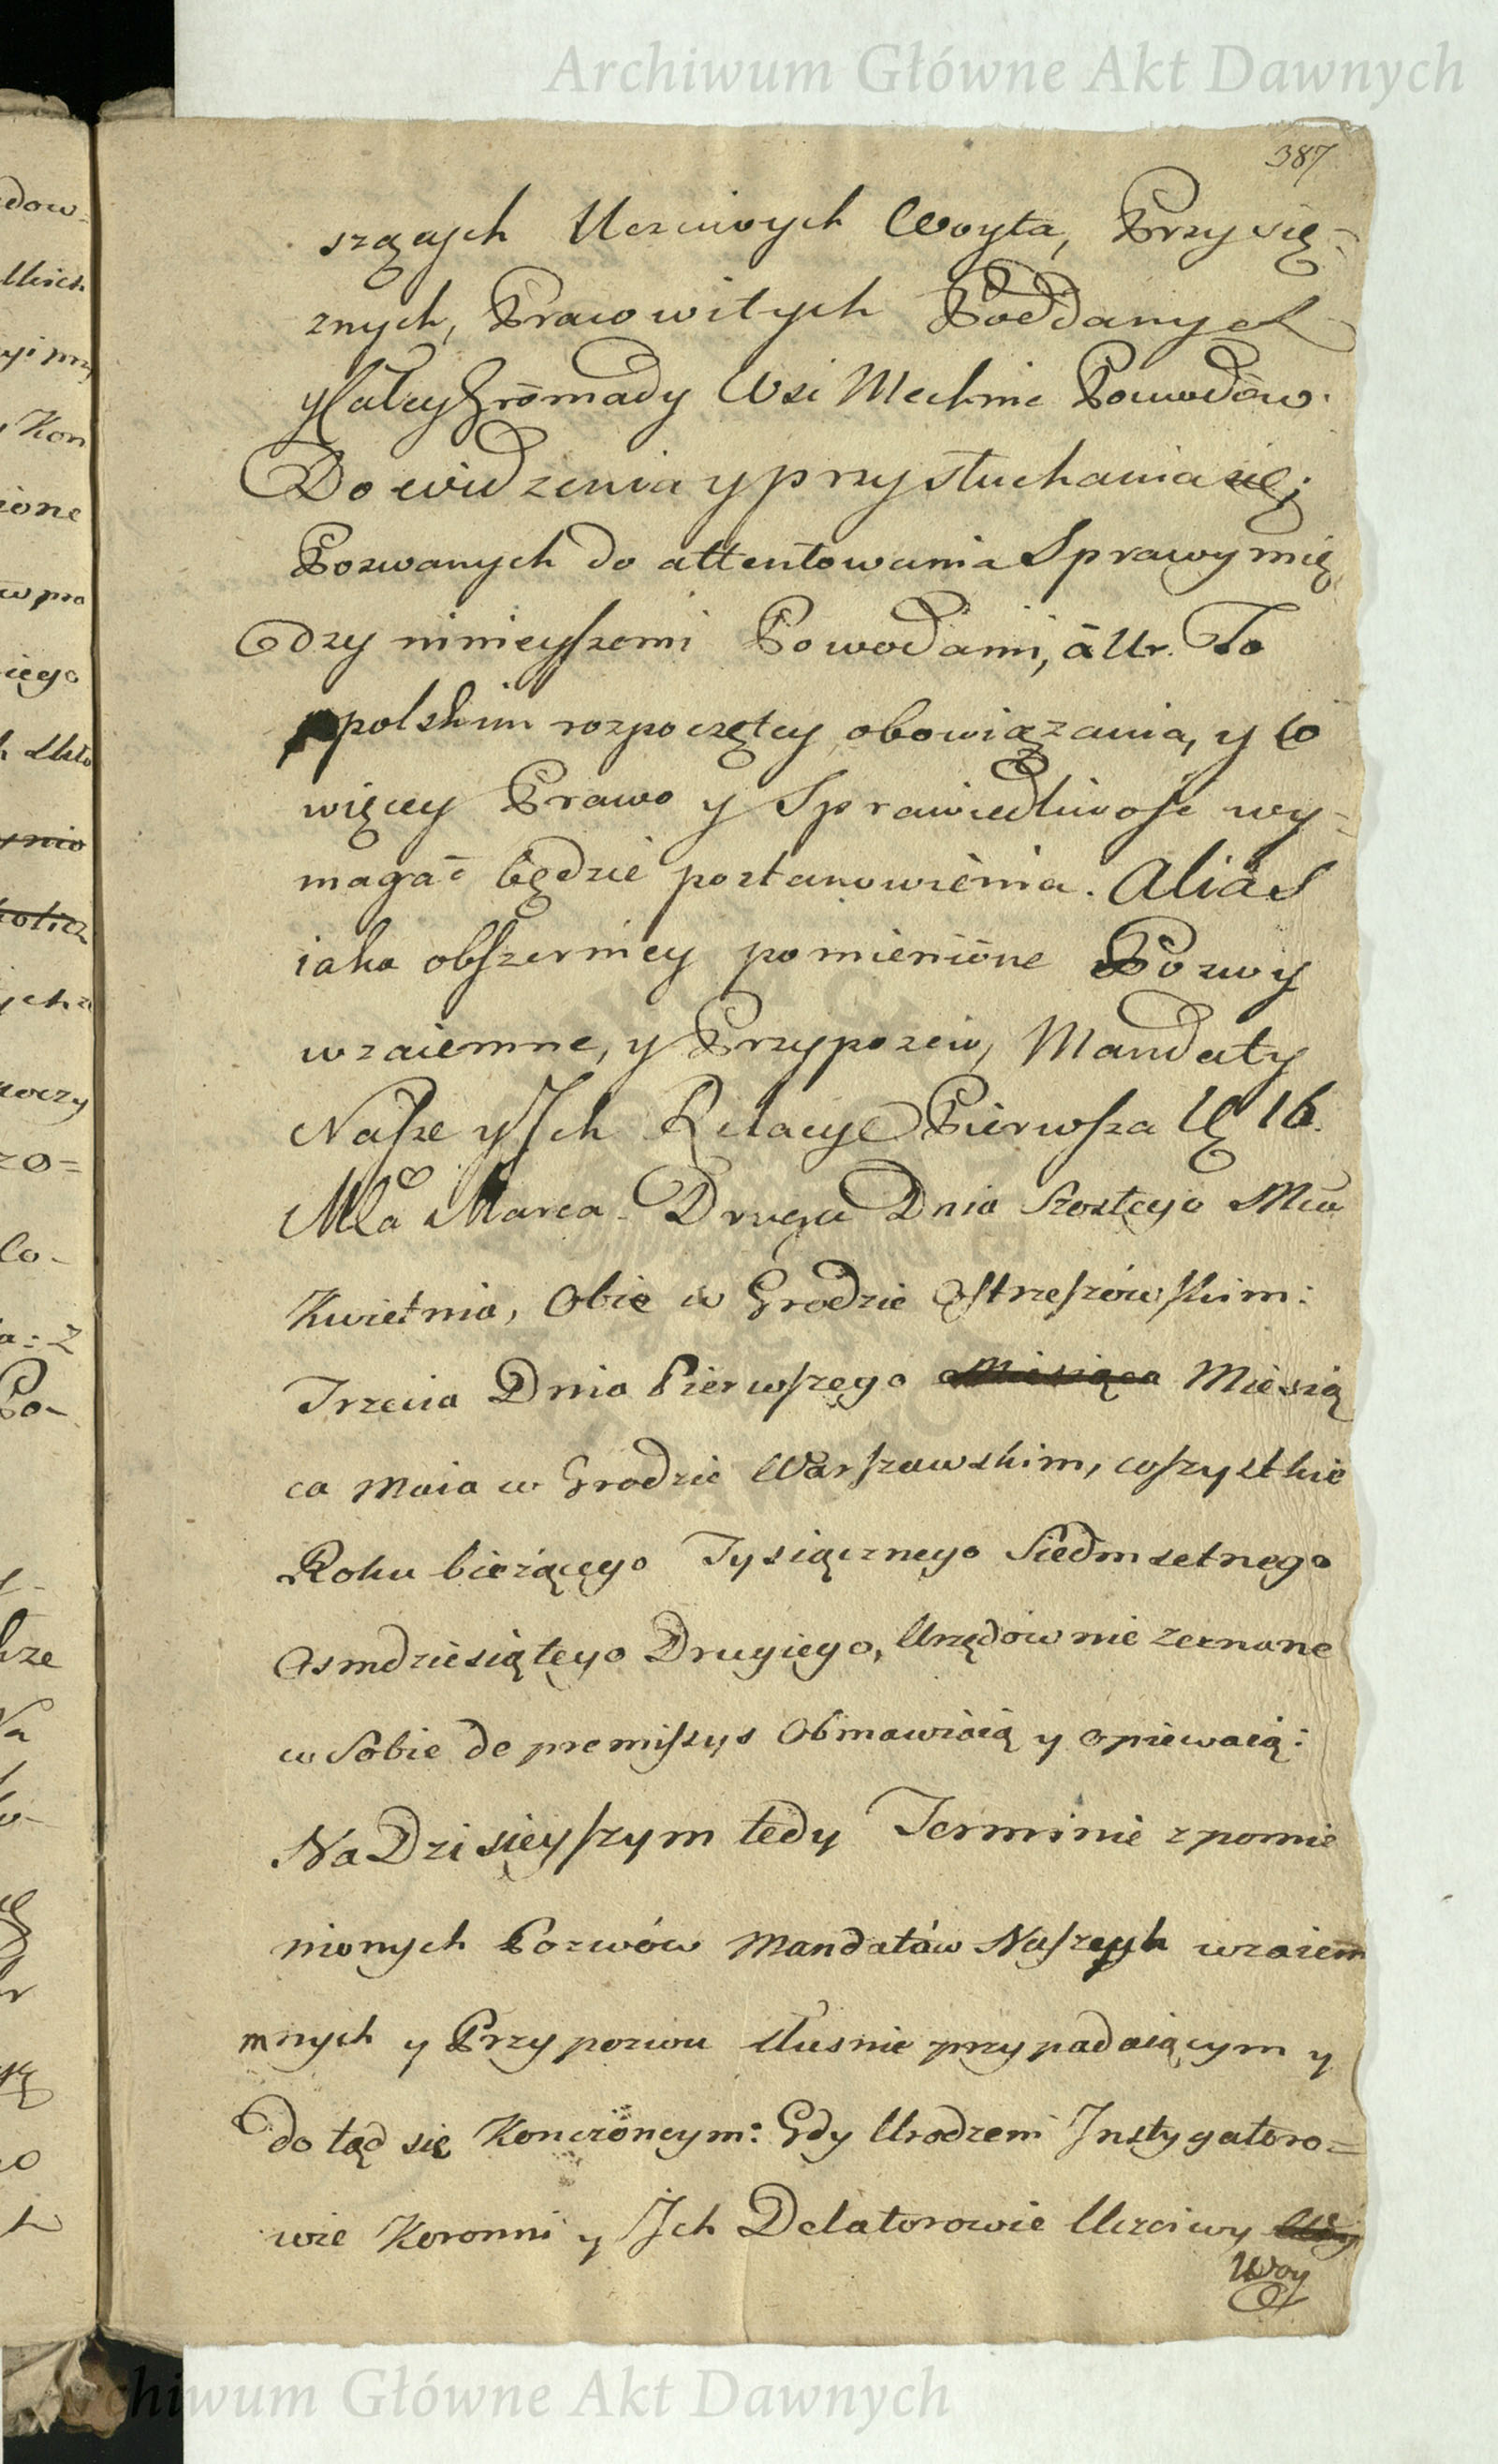 Archiwum Główne Akt Dawnych
387
szących Uczciwych Woyta, Przysię-
znych, Prawowitych Poddanych
y Całey Gromady Wsi Mechnic Powodów.
Do widzenia y przysłuchania się;
Pozwanych do attentowania Sprawy mię
dzy ninieyszemi Powodami, á Ur. To
polskim rozpoczętey obowiązania, y co
więcey Prawo y Sprawiedliwość wy-
magać będzie postanowienia. Alias
iako obszerniey pomienione Pozwy
wzaiemne, y Przypozew, Mandaty
Nasze y Ich Relacye Pierwsza 16.
Mca Marca Druga Dnia Szostego Mca
Kwietnia, Obie w Grodzie Ostrzeszowskim:
Trzecia Dnia Pierwszego Miesiąca Miesią
ca Maia w Grodzie Warszawskim, wszystkie
Roku bieżącego Tysiącznego Siedmsetnego
Osmdziesiątego Drugiego, Urzędownie zeznane
w Sobie de premissys Obmawiaią y opiewaią:
Na Dzisieyszym tedy Terminie z pomie
nionych Pozwów Mandatów Naszych wzaiem
mnych y Przypozwu słusnie przypadaiącym y
do tąd się Konczoncym: Gdy Urodzeni Instygatoro=
wie Koronni y Ich Delatorowie Uczciwy Woy
Woy
Archiwum Główne Akt Dawnych